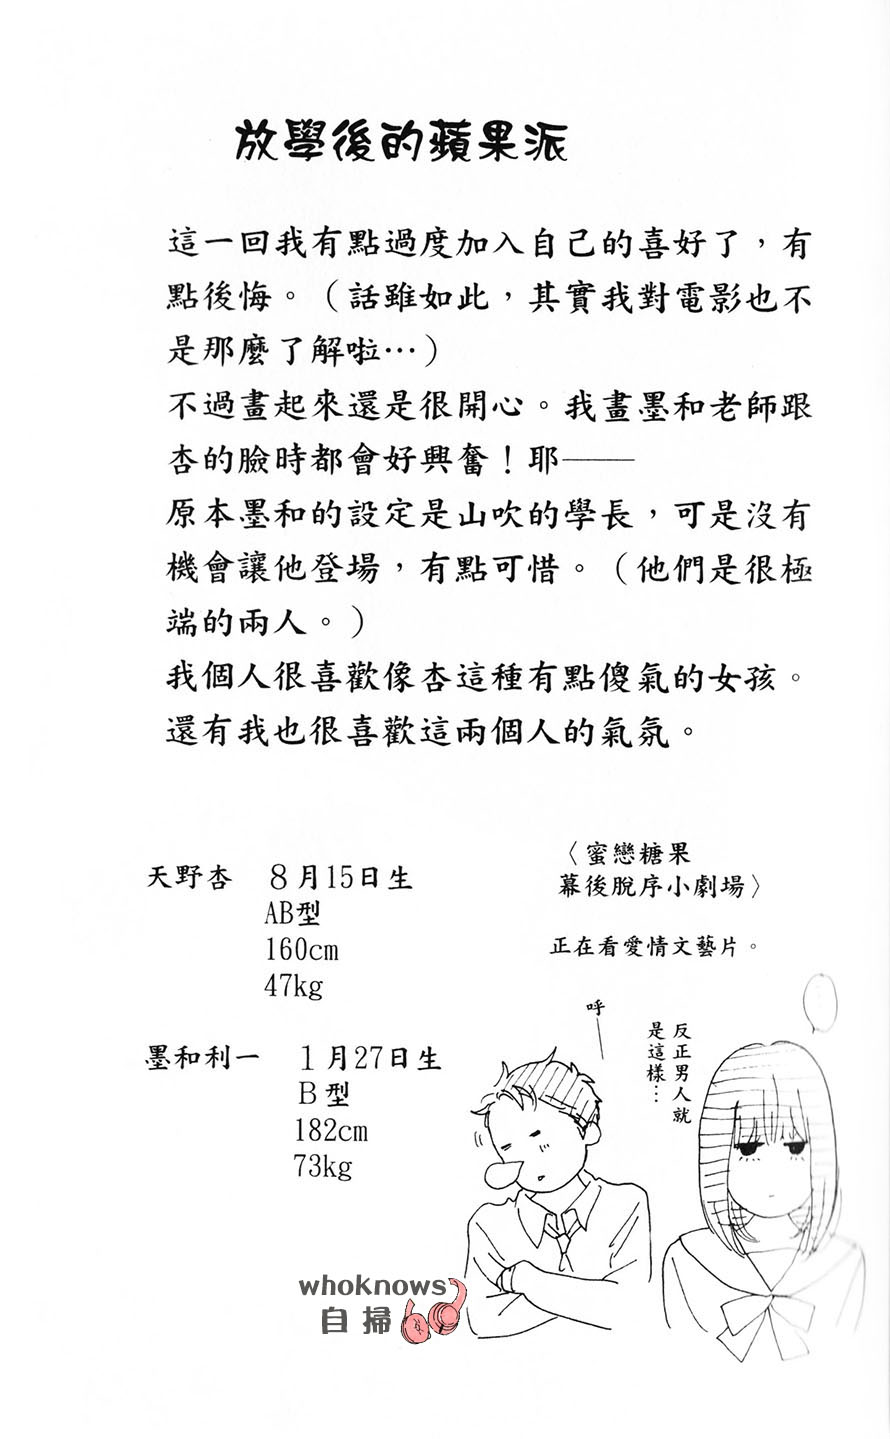 放學後的蘋果派
這一回我有點過度加入自己的喜好了，有
點後悔。（話雖如此，其實我對電影也不
是那麼了解啦…）
不過畫起來還是很開心。我畫墨和老師跟
杏的臉時都會好興奮！耶——
原本墨和的設定是山吹的學長，可是沒有
機會讓他登場，有點可惜。（他們是很極
端的兩人。）
我個人很喜歡像杏這種有點傻氣的女孩。
還有我也很喜歡這兩個人的氣氛。
天野杏　８月15日生
AB型
160cm
47kg
墨和利一　１月27日生
Ｂ型
182cm
73kg
〈蜜戀糖果
幕後脫序小劇場〉
正在看愛情文藝片。
反正男人就
是這樣…
呼
whoknows
自掃